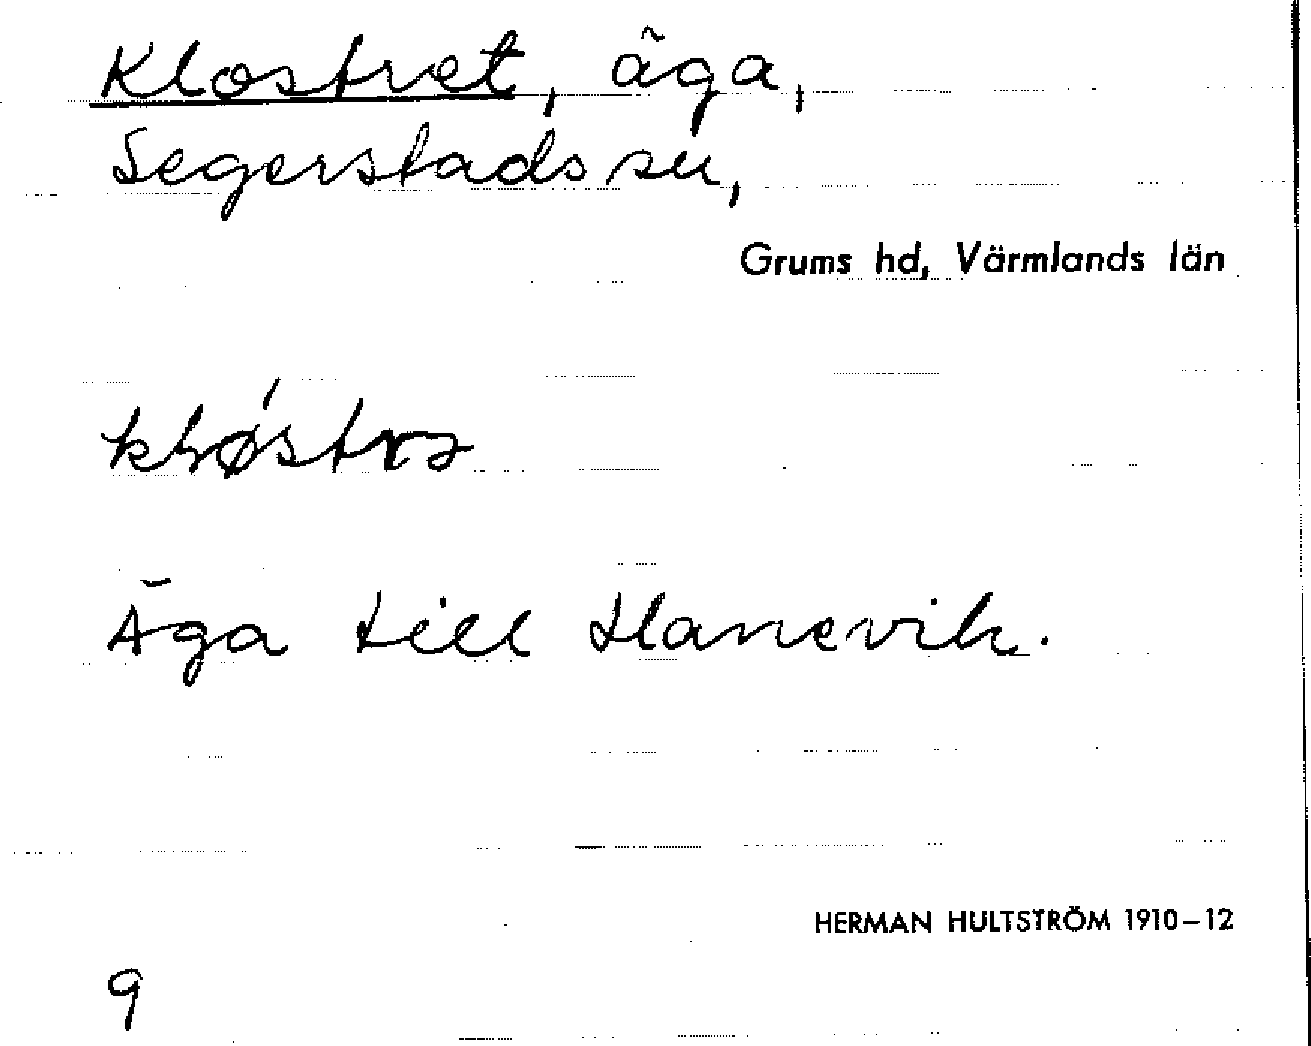 Klostret, äga,
Segerstads sn,
Grums hd, Värmlands län
Äga till Hanevik.
HERMAN HULTSTRÖM 1910–12
9